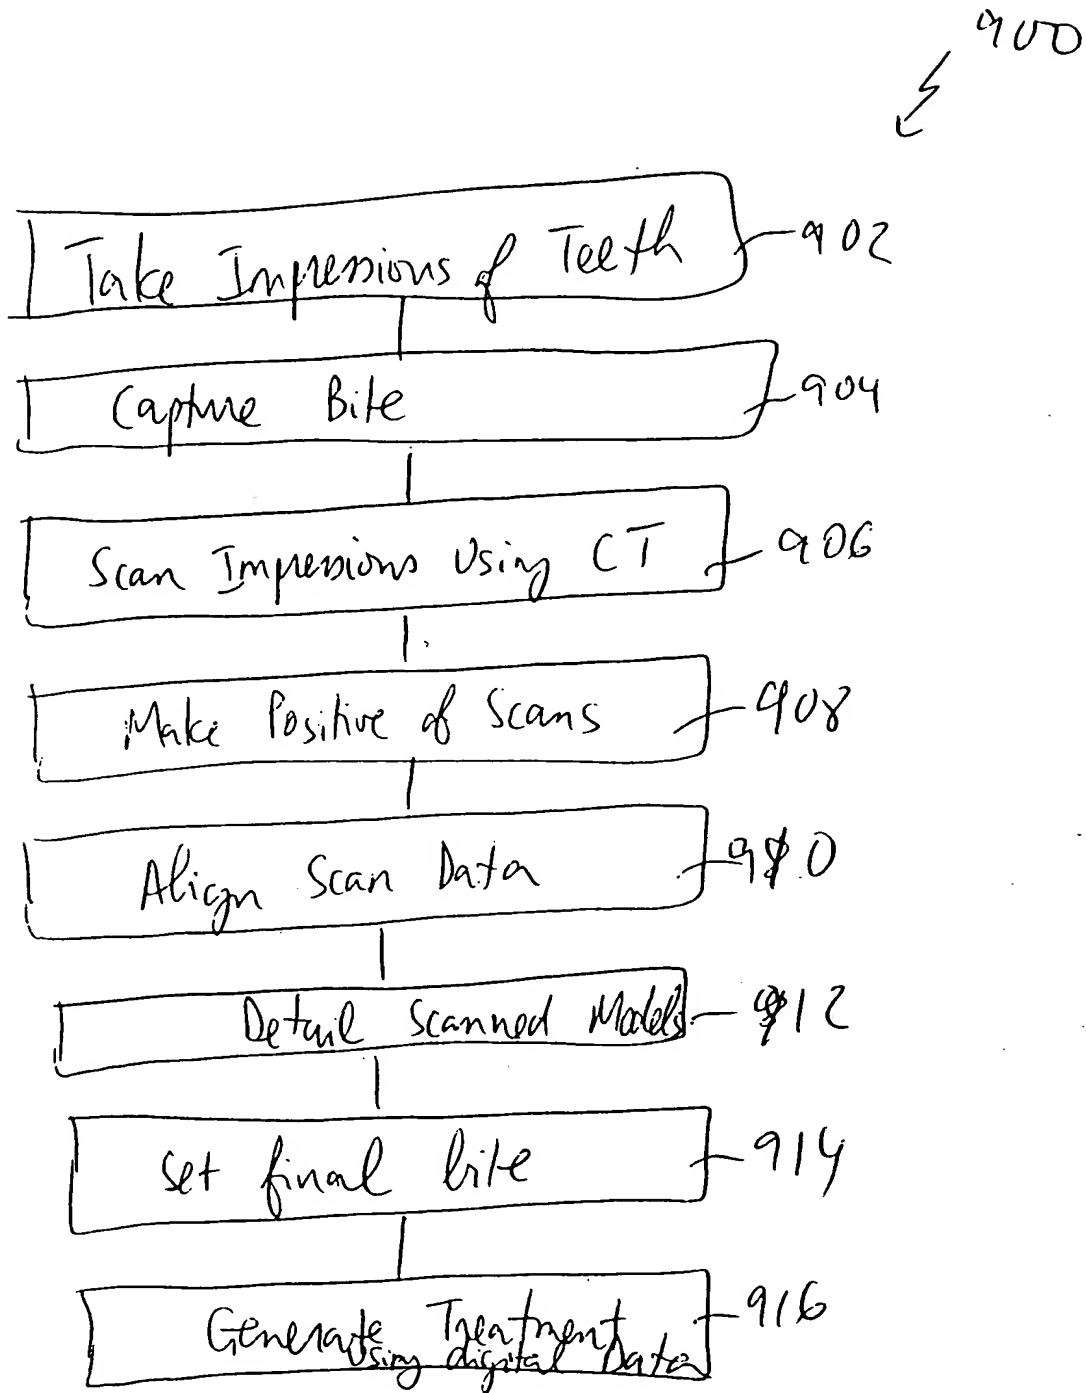 900
Take Impressions of Teeth 902
Capture Bite 904
Scan Impressions Using CT 906
Make Positive of Scans 908
Align Scan Data 910
Detail Scanned Models 912
set final bite 914
Generate Treatment 916
Using digital Data